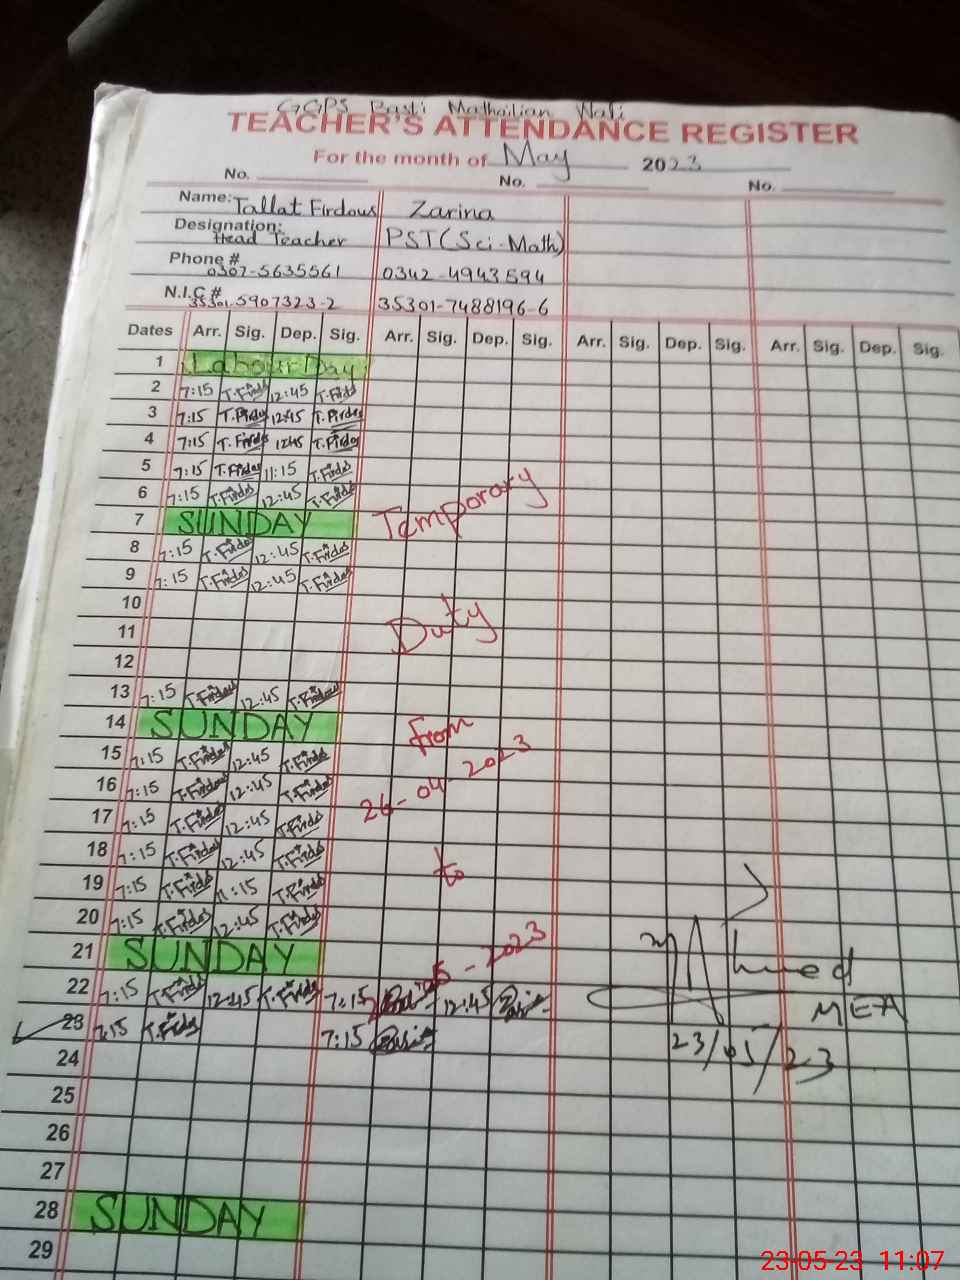 GGPS Basti Mathailian Wali
TEACHER'S ATTENDANCE REGISTER
For the month of May 2023
No. No. No.
Name: Tallat Firdous Zarina
Designation: Head Teacher PST (Sci-Math)
Phone # 0307-5635561 0342-4943594
N.I.C # 35301-5907323-2 35301-7488196-6
Dates Arr. Sig. Dep. Sig. Arr. Sig. Dep. Sig. Arr. Sig. Dep. Sig. Arr. Sig. Dep. Sig.
1 Labour Day
2 7:15 T.Firdos 12:45 T.Firdos
3 7:15 T.Firdos 12:45 T.Firdos
4 7:15 T.Firdos 12:45 T.Firdos
5 7:15 T.Firdos 11:15 T.Firdos
6 7:15 T.Firdos 12:45 T.Firdos
Temporary
7 SUNDAY
8 7:15 T.Firdos 12:45 T.Firdos
9 7:15 T.Firdos 12:45 T.Firdos
10
11 Duty
12
13 7:15 T.Firdos 12:45 T.Firdos
14 SUNDAY from
15 7:15 T.Firdos 12:45 T.Firdos
16 7:15 T.Firdos 12:45 T.Firdos 26-04-2023
17 7:15 T.Firdos 12:45 T.Firdos
18 7:15 T.Firdos 12:45 T.Firdos to
19 7:15 T.Firdos 11:15 T.Firdos
20 7:15 T.Firdos 12:45 T.Firdos
21 SUNDAY 5-2023 Ahmed
22 7:15 T.Firdos 12:45 T.Firdos 7:15 12:45 MEA
23 7:15 T.Firdos 7:15 23/05/23
24
25
26
27
28 SUNDAY
29
23-05-23 11:07